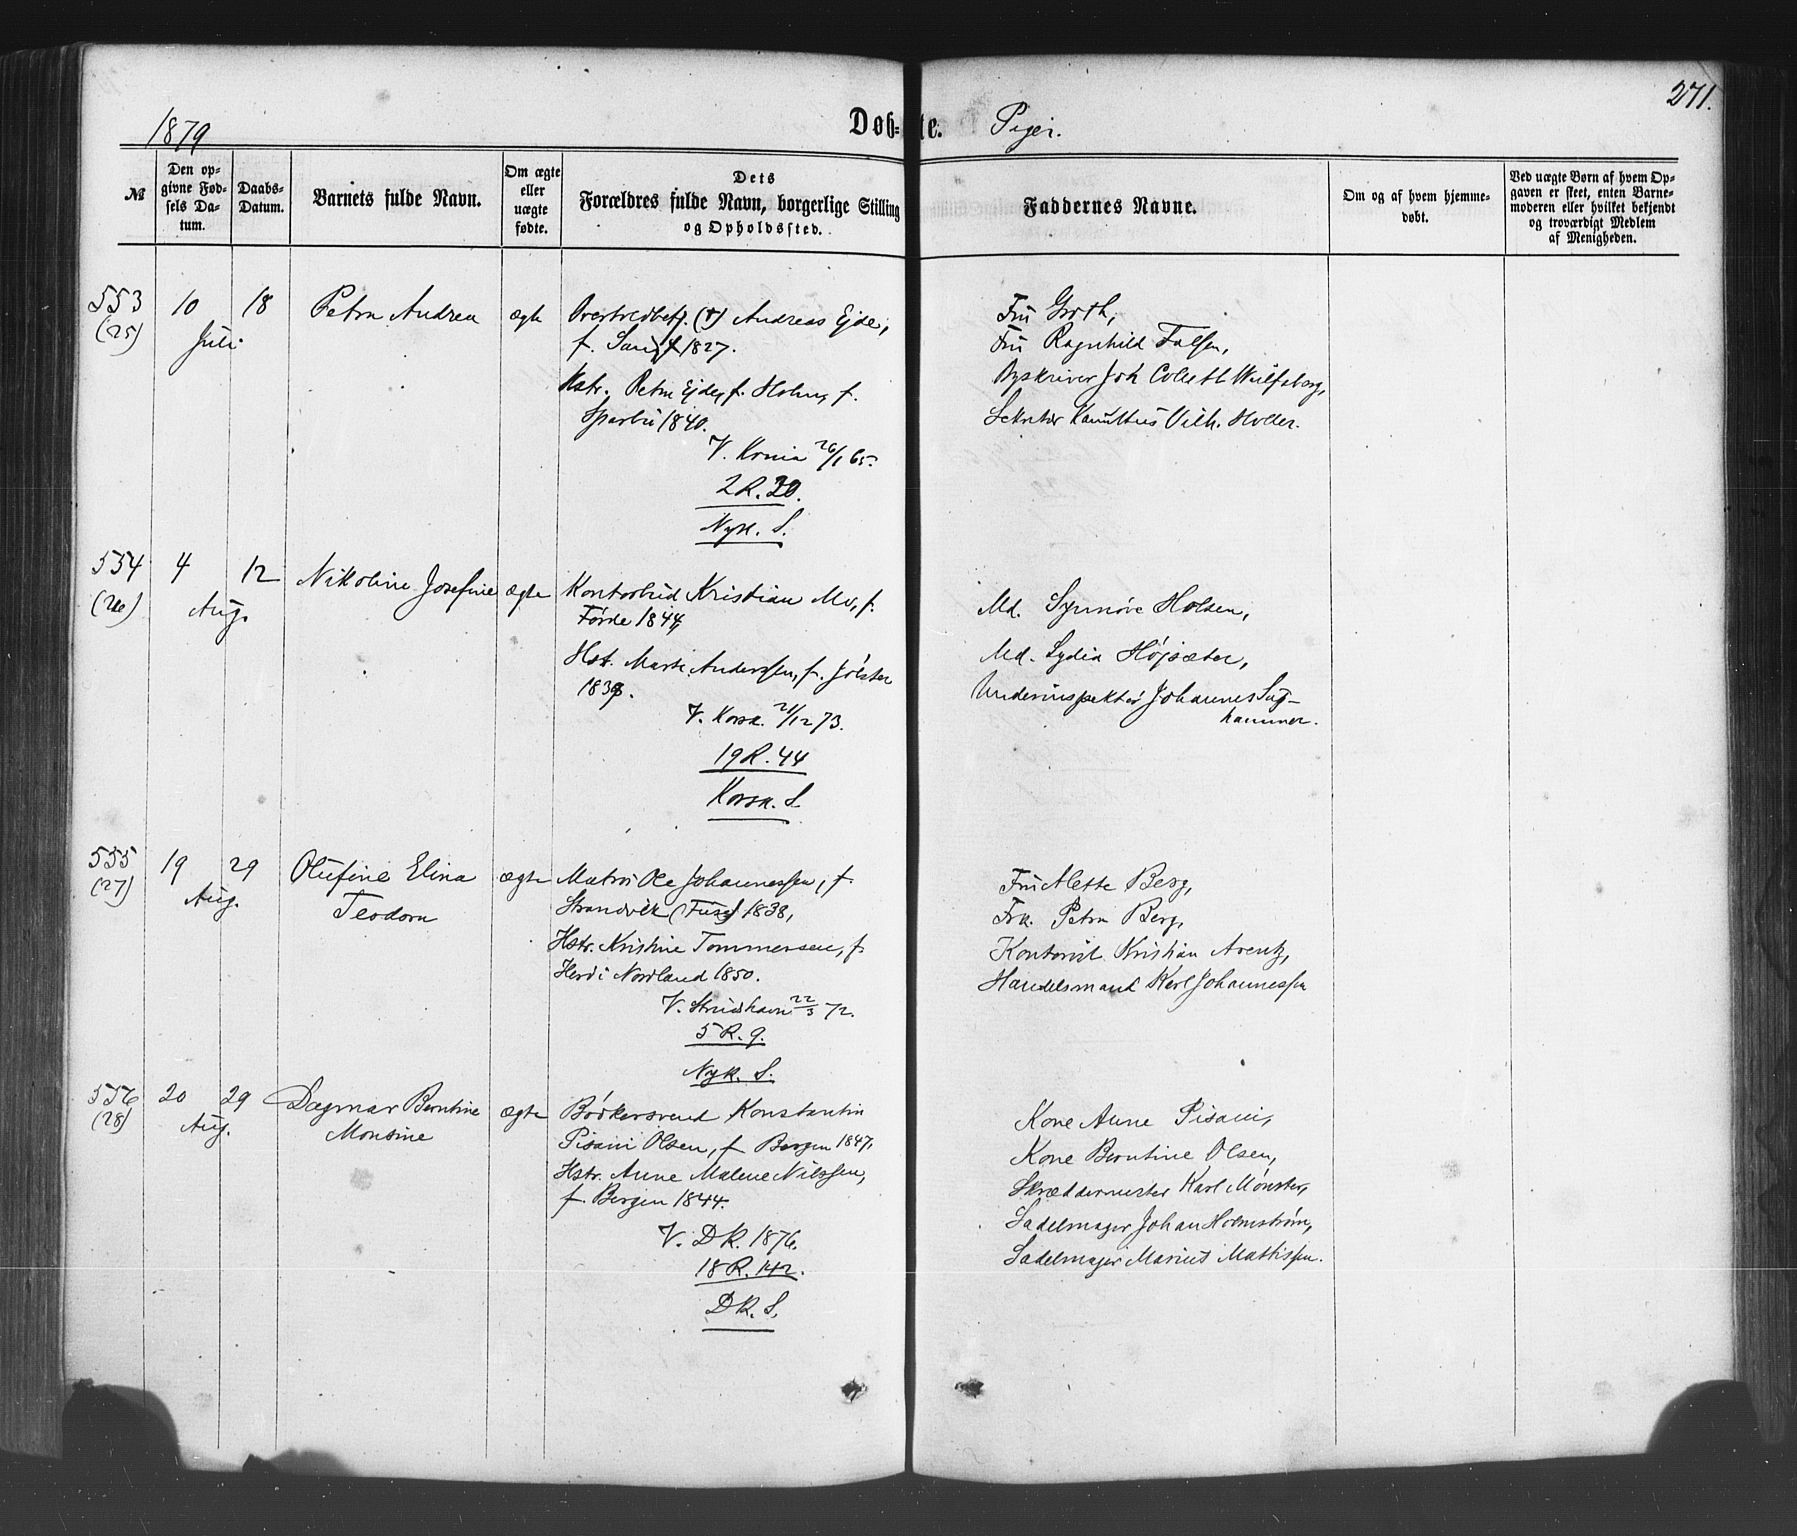 271.
1879 Døb-te. Piger.
№
Den opgivne Fødsels Datum.
Daabs-Datum.
Barnets fulde Navn.
Om ægte eller uægte fødte.
Dets Forældres fulde Navn, borgerlige Stilling og Opholdssted.
Faddernes Navne.
Om og af hvem hjemmedøbt.
Ved uægte Børn af hvem Opgaven er skeet, enten Barnemoderen eller hvilket bekjendt og troværdigt Medlem af Menigheden.
553 (25)
10 18 Juli
Petra Andrea
ægte
Andreas Ejde,
f. 1827.
Hstr. Petra Ejde, f. Holm, f.
Sparbu 1840.
V. 26/1 65.
2 R. 20.
Nyk. S.
Fru Groth,
Fru Ragnhild Falsen,
Byskriver Joh Collett Wulfsberg,
Sekretær Vilh. Holler.
554 (26)
4 12 Aug.
Nikoline Josefine
ægte
Kontorbud Kristian Mo, f.
Førde 1844,
Hst. Marte Anderssen, f. Jølster
1839.
V. Korsk. 21/12 73.
19 R. 44
Korsk. S.
Md. Synnøve Holsen,
Md. Lydia Højsæter,
Underinspektør Johannes
555 (27)
19 29 Aug.
Olufine Elina
Teodora
ægte
Matros Ole Johannessen, f.
Strandvik (Fuse) 1838,
Hstr. Kristine Tommersen, f.
Herø i Nordland 1850.
V. 22/3 72.
5 R. 9.
Nyk. S.
Fru Alette Berg,
Frk. Petra Berg,
Kontorist Kristian Arentz,
Handelsmand Karl Johannessen
556 (28)
20 29 Aug.
Dagmar Berntine
Monsine
ægte
Bødkersvend Konstantin
Pisani Olsen, f. Bergen 1847,
Hstr. Anne Malene Nilssen,
f. Bergen 1844.
V. DK. 1876.
18 R. 142.
DK. S.
Kone Anne Pisani,
Kone Berntine Olsen,
Skræddermester Karl Mønster,
Sadelmager Johan Holmstrøm,
Sadelmager Marius Mathissen.